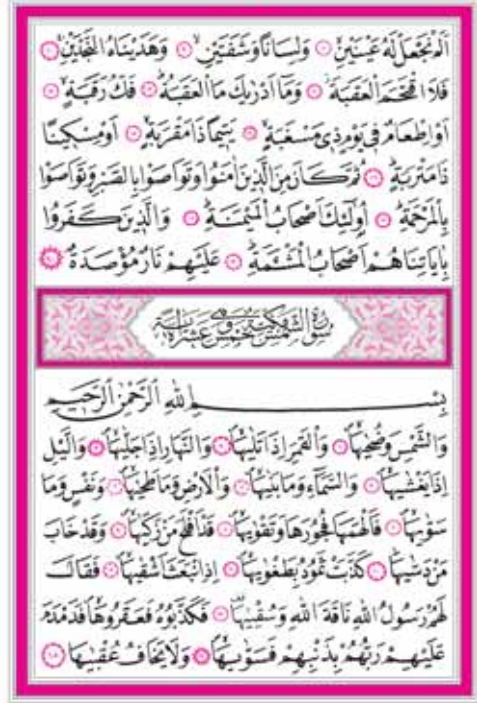 اَلَمْ نَجْعَلْ لَهُ عَيْنَيْنِۙ ﴿٨﴾ وَلِسَانًا وَشَفَتَيْنِۙ ﴿٩﴾ وَهَدَيْنَاهُ النَّجْدَيْنِۚ ﴿١٠﴾
فَلَا اقْتَحَمَ الْعَقَبَةَۘ ﴿١١﴾ وَمَٓا اَدْرٰيكَ مَا الْعَقَبَةُۜ ﴿١٢﴾ فَكُّ رَقَبَةٍۙ ﴿١٣﴾
اَوْ اِطْعَامٌ فٖي يَوْمٍ ذٖي مَسْغَبَةٍۙ ﴿١٤﴾ يَتٖيمًا ذَا مَقْرَبَةٍۙ ﴿١٥﴾ اَوْ مِسْكٖينًا
ذَا مَتْرَبَةٍۜ ﴿١٦﴾ ثُمَّ كَانَ مِنَ الَّذٖينَ اٰمَنُوا وَتَوَاصَوْا بِالصَّبْرِ وَتَوَاصَوْا
بِالْمَرْحَمَةِۜ ﴿١٧﴾ اُو۬لٰٓئِكَ اَصْحَابُ الْمَيْمَنَةِۜ ﴿١٨﴾ وَالَّذٖينَ كَفَرُوا
بِاٰيَاتِنَا هُمْ اَصْحَابُ الْمَشْـَٔمَةِۜ ﴿١٩﴾ عَلَيْهِمْ نَارٌ مُؤْصَدَةٌ ﴿٢٠﴾
سُورَةُ الشَّمْسِ مَكِّيَّةٌ وَهِيَ خَمْسَ عَشْرَةَ اٰيَةً
بِسْمِ اللهِ الرَّحْمٰنِ الرَّحٖيمِ
وَالشَّمْسِ وَضُحٰيهَاۙ ﴿١﴾ وَالْقَمَرِ اِذَا تَلٰيهَاۙ ﴿٢﴾ وَالنَّهَارِ اِذَا جَلّٰيهَاۙ ﴿٣﴾ وَالَّيْلِ
اِذَا يَغْشٰيهَاۙ ﴿٤﴾ وَالسَّمَٓاءِ وَمَا بَنٰيهَاۙ ﴿٥﴾ وَالْاَرْضِ وَمَا طَحٰيهَاۙ ﴿٦﴾ وَنَفْسٍ وَمَا
سَوّٰيهَاۙ ﴿٧﴾ فَاَلْهَمَهَا فُجُورَهَا وَتَقْوٰيهَاۙ ﴿٨﴾ قَدْ اَفْلَحَ مَنْ زَكّٰيهَاۙ ﴿٩﴾ وَقَدْ خَابَ
مَنْ دَسّٰيهَاۜ ﴿١٠﴾ كَذَّبَتْ ثَمُودُ بِطَغْوٰيهَاۙ ﴿١١﴾ اِذِ انْبَعَثَ اَشْقٰيهَاۙ ﴿١٢﴾ فَقَالَ
لَهُمْ رَسُولُ اللهِ نَاقَةَ اللهِ وَسُقْيٰيهَاۜ ﴿١٣﴾ فَكَذَّبُوهُ فَعَقَرُوهَاۙ فَدَمْدَمَ
عَلَيْهِمْ رَبُّهُمْ بِذَنْبِهِمْ فَسَوّٰيهَاۙ ﴿١٤﴾ وَلَا يَخَافُ عُقْبٰيهَا ﴿١٥﴾